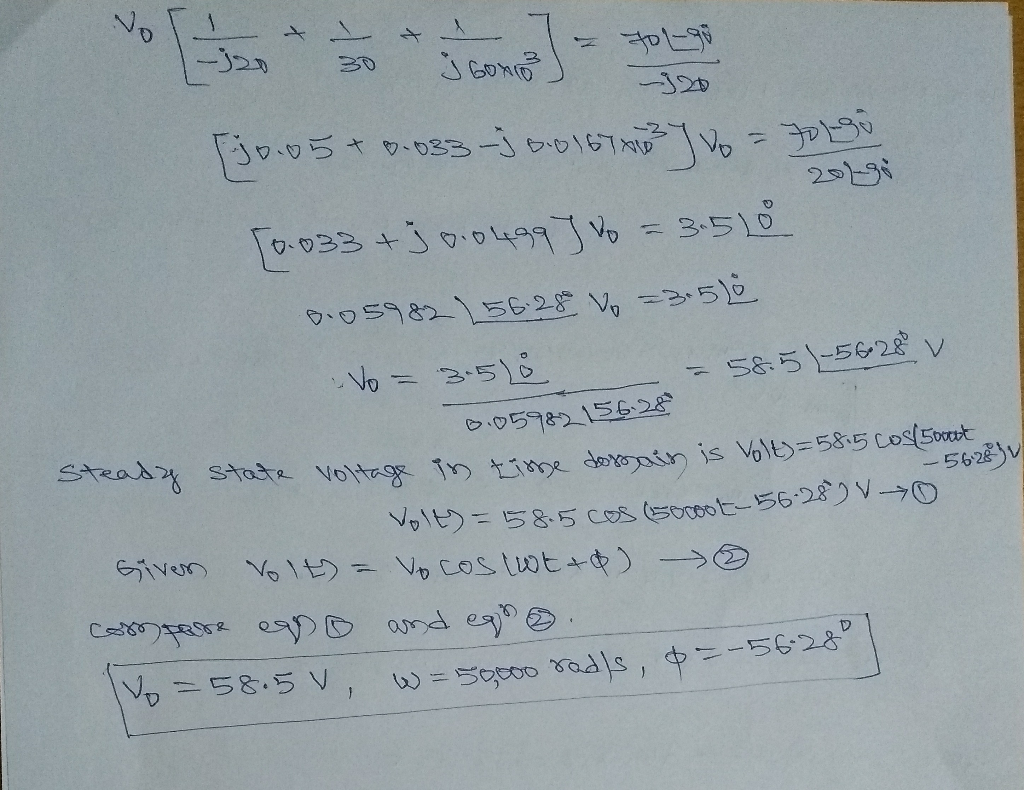 V₀ [1/-j20 + 1/30 + 1/j60×10³] = 70∠-90°/-j20
[j0.05 + 0.033 - j0.0167×10⁻³] V₀ = 70∠-90°/20∠-90°
[0.033 + j0.0499] V₀ = 3.5∠0°
0.05982∠56.28° V₀ = 3.5∠0°
∴ V₀ = 3.5∠0°/0.05982∠56.28° = 58.5∠-56.28° V
Steady state voltage in time domain is V₀(t) = 58.5 cos(50000t - 56.28°)V
V₀(t) = 58.5 cos (50000t - 56.28°) V → ①
Given V₀(t) = V₀ cos(ωt + φ) → ②
compare eqn ① and eqⁿ ②.
V₀ = 58.5 V, ω = 50,000 rad/s, φ = -56.28°